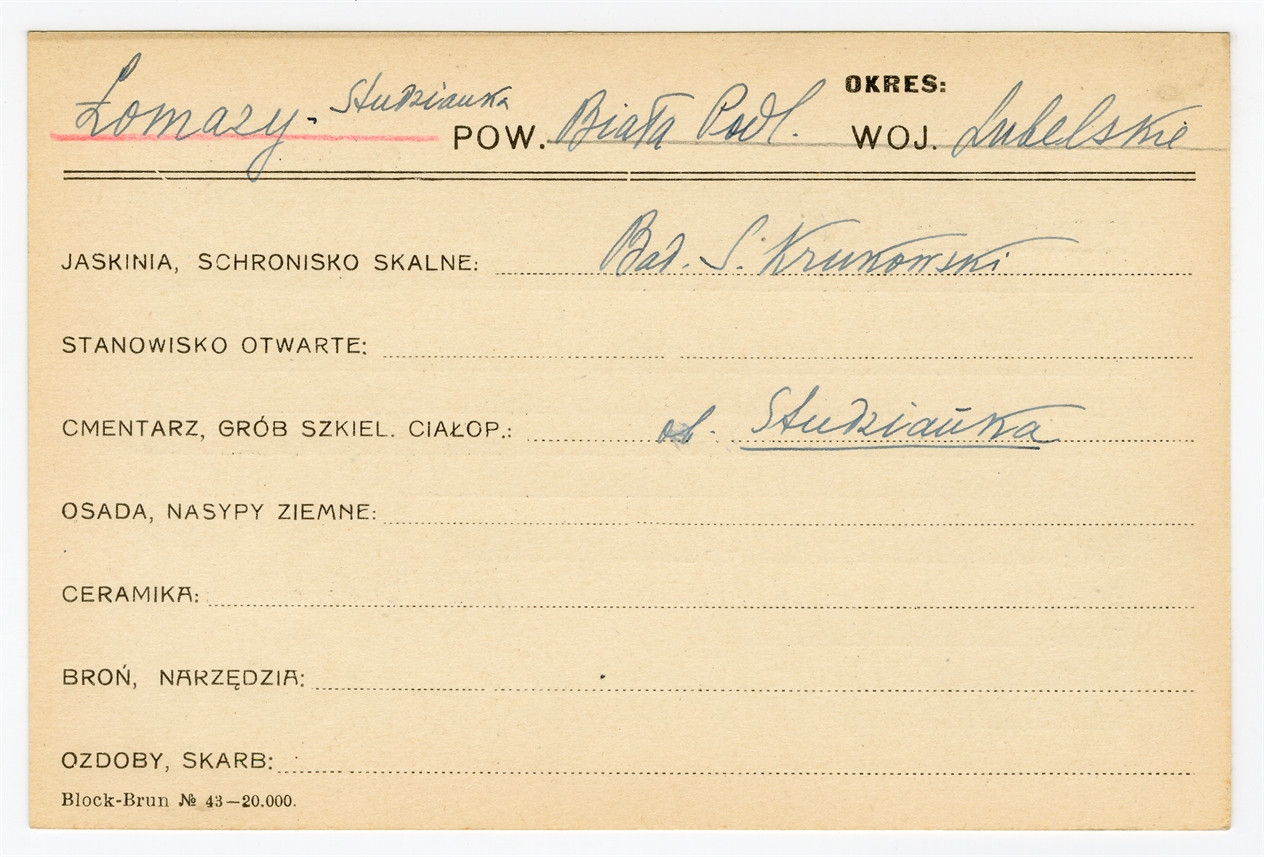 OKRES:
Łomazy - Studzianka POW. Biała Podl. WOJ. Lubelskie
JASKINIA, SCHRONISKO SKALNE: Bad. S. Krukowski
STANOWISKO OTWARTE:
CMENTARZ, GRÓB SZKIEL. CIAŁOP.: Studzianka
OSADA, NASYPY ZIEMNE:
CERAMIKA:
BROŃ, NARZĘDZIA:
OZDOBY, SKARB:
Block-Brun № 43—20.000.